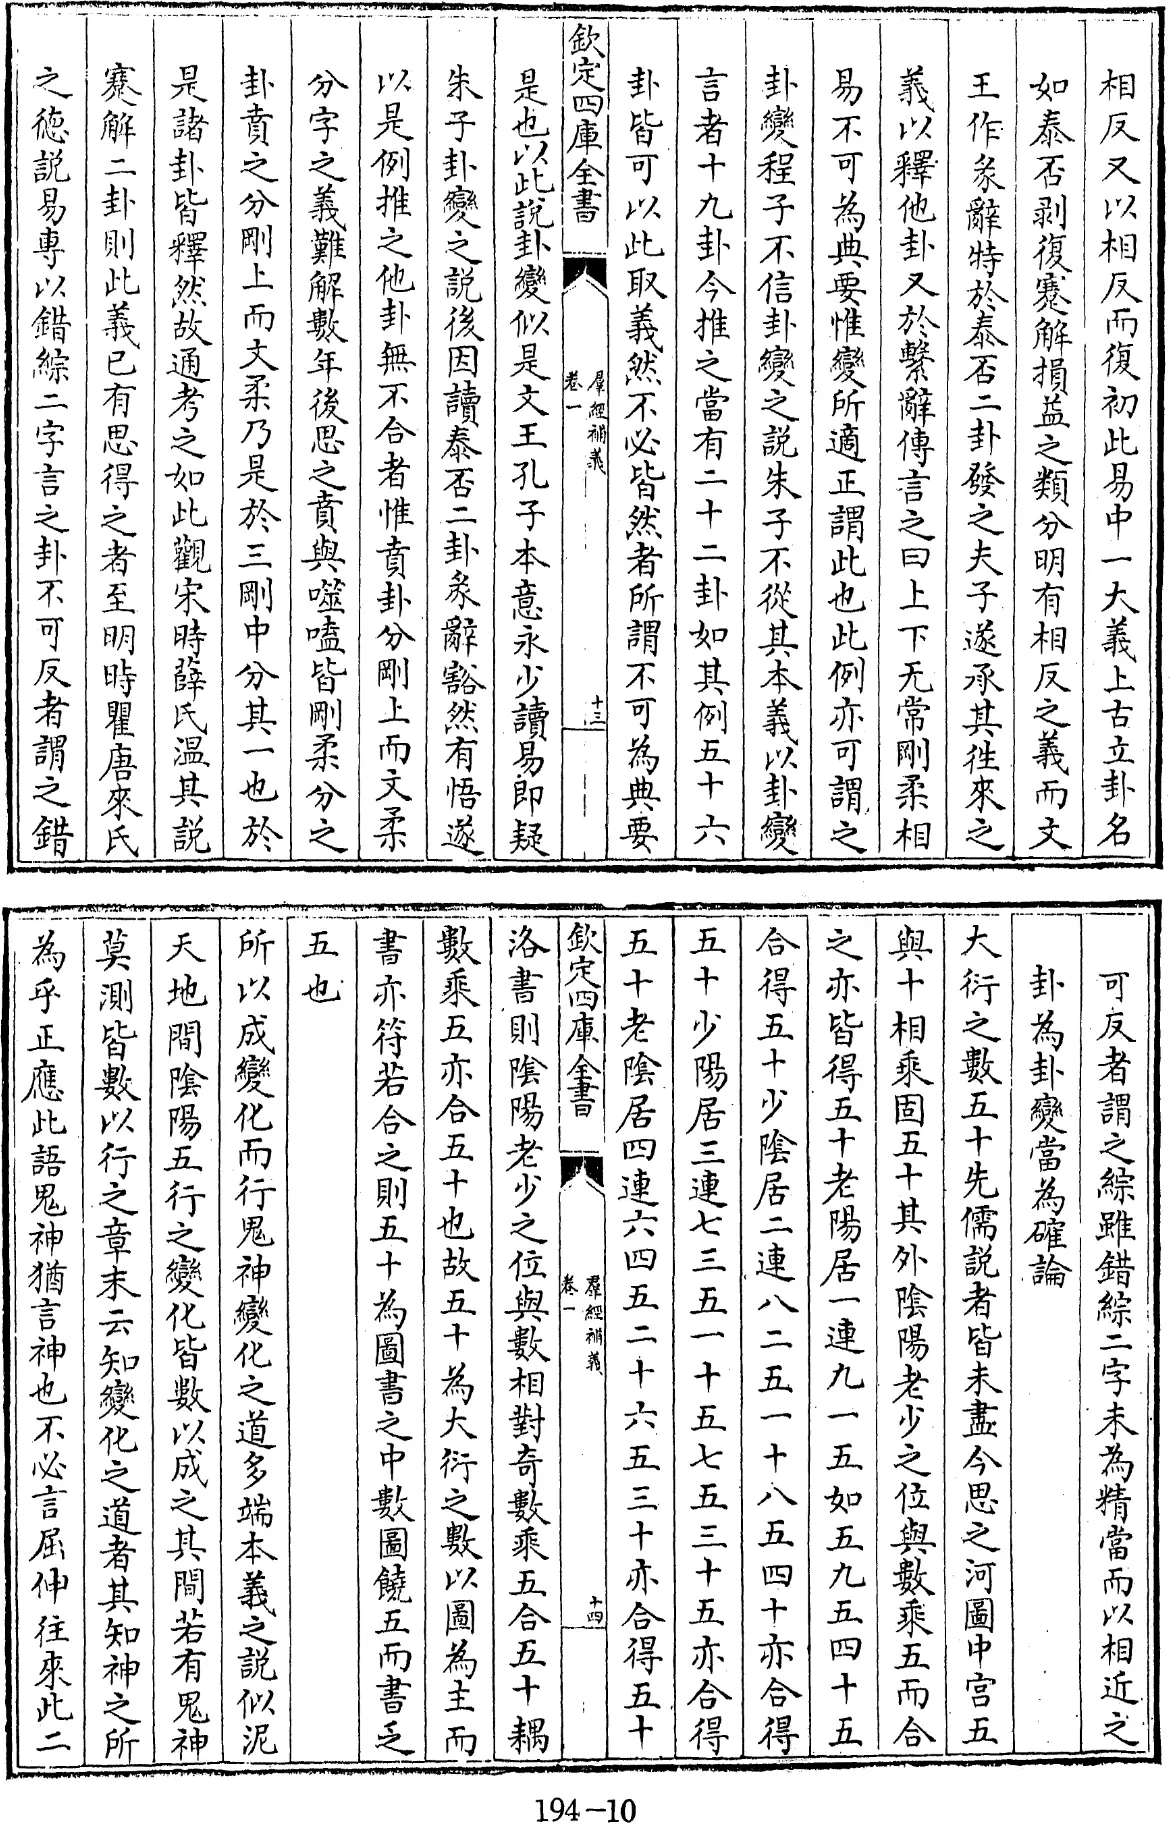 相反又以相反而復初此易中一大義上古立卦名
如泰否剥復蹇解損益之類分明有相反之義而文
王作彖辭特於泰否二卦發之夫子遂承其徃來之
義以釋他卦又於繫辭傳言之曰上下无常剛柔相
易不可為典要惟變所適正謂此也此例亦可謂之
卦變程子不信卦變之説朱子不從其本義以卦變
言者十九卦今推之當有二十二卦如其例五十六
卦皆可以此取義然不必皆然者所謂不可為典要
欽定四庫全書
羣經補義
卷一
十三
是也以此説卦變似是文王孔子本意永少讀易即疑
朱子卦變之説後因讀泰否二卦彖辭豁然有悟遂
以是例推之他卦無不合者惟賁卦分剛上而文柔
分字之義難解數年後思之賁與噬嗑皆剛柔分之
卦賁之分剛上而文柔乃是於三剛中分其一也於
是諸卦皆釋然故通考之如此觀宋時薛氏温其説
蹇解二卦則此義已有思得之者至明時瞿唐來氏
之德説易專以錯綜二字言之卦不可反者謂之錯
可反者謂之綜雖錯綜二字未為精當而以相近之
卦為卦變當為確論
大衍之數五十先儒説者皆未盡今思之河圖中宫五
與十相乘固五十其外陰陽老少之位與數乘五而合
之亦皆得五十老陽居一連九一五如五九五四十五
合得五十少陰居二連八二五一十八五四十亦合得
五十少陽居三連七三五一十五七五三十五亦合得
五十老陰居四連六四五二十六五三十亦合得五十
欽定四庫全書
羣經補義
卷一
十四
洛書則陰陽老少之位與數相對奇數乘五合五十耦
數乘五亦合五十也故五十為大衍之數以圖為主而
書亦符若合之則五十為圖書之中數圖饒五而書乏
五也
所以成變化而行鬼神變化之道多端本義之説似泥
天地間陰陽五行之變化皆數以成之其間若有鬼神
莫測皆數以行之章末云知變化之道者其知神之所
為乎正應此語鬼神猶言神也不必言屈伸往來此二
194-10